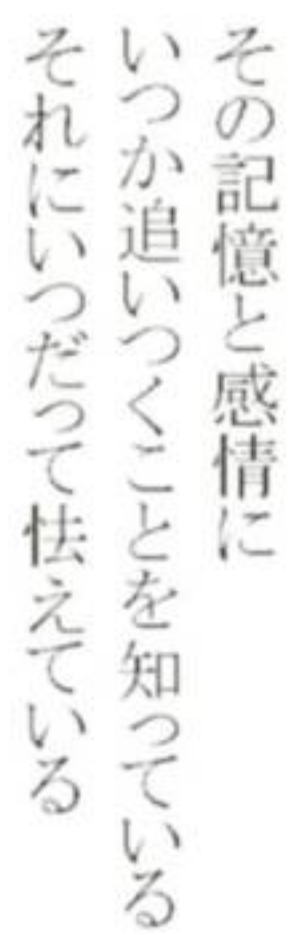 その記憶と感情に
いつか追いつくことを知っている
それにいつだって怯えている